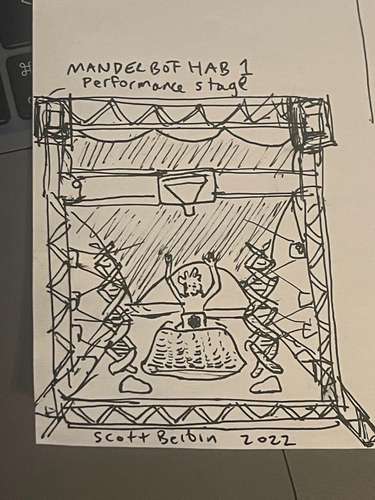 MANDELBOT HAB 1
Performance stage
Scott Beibin 2022